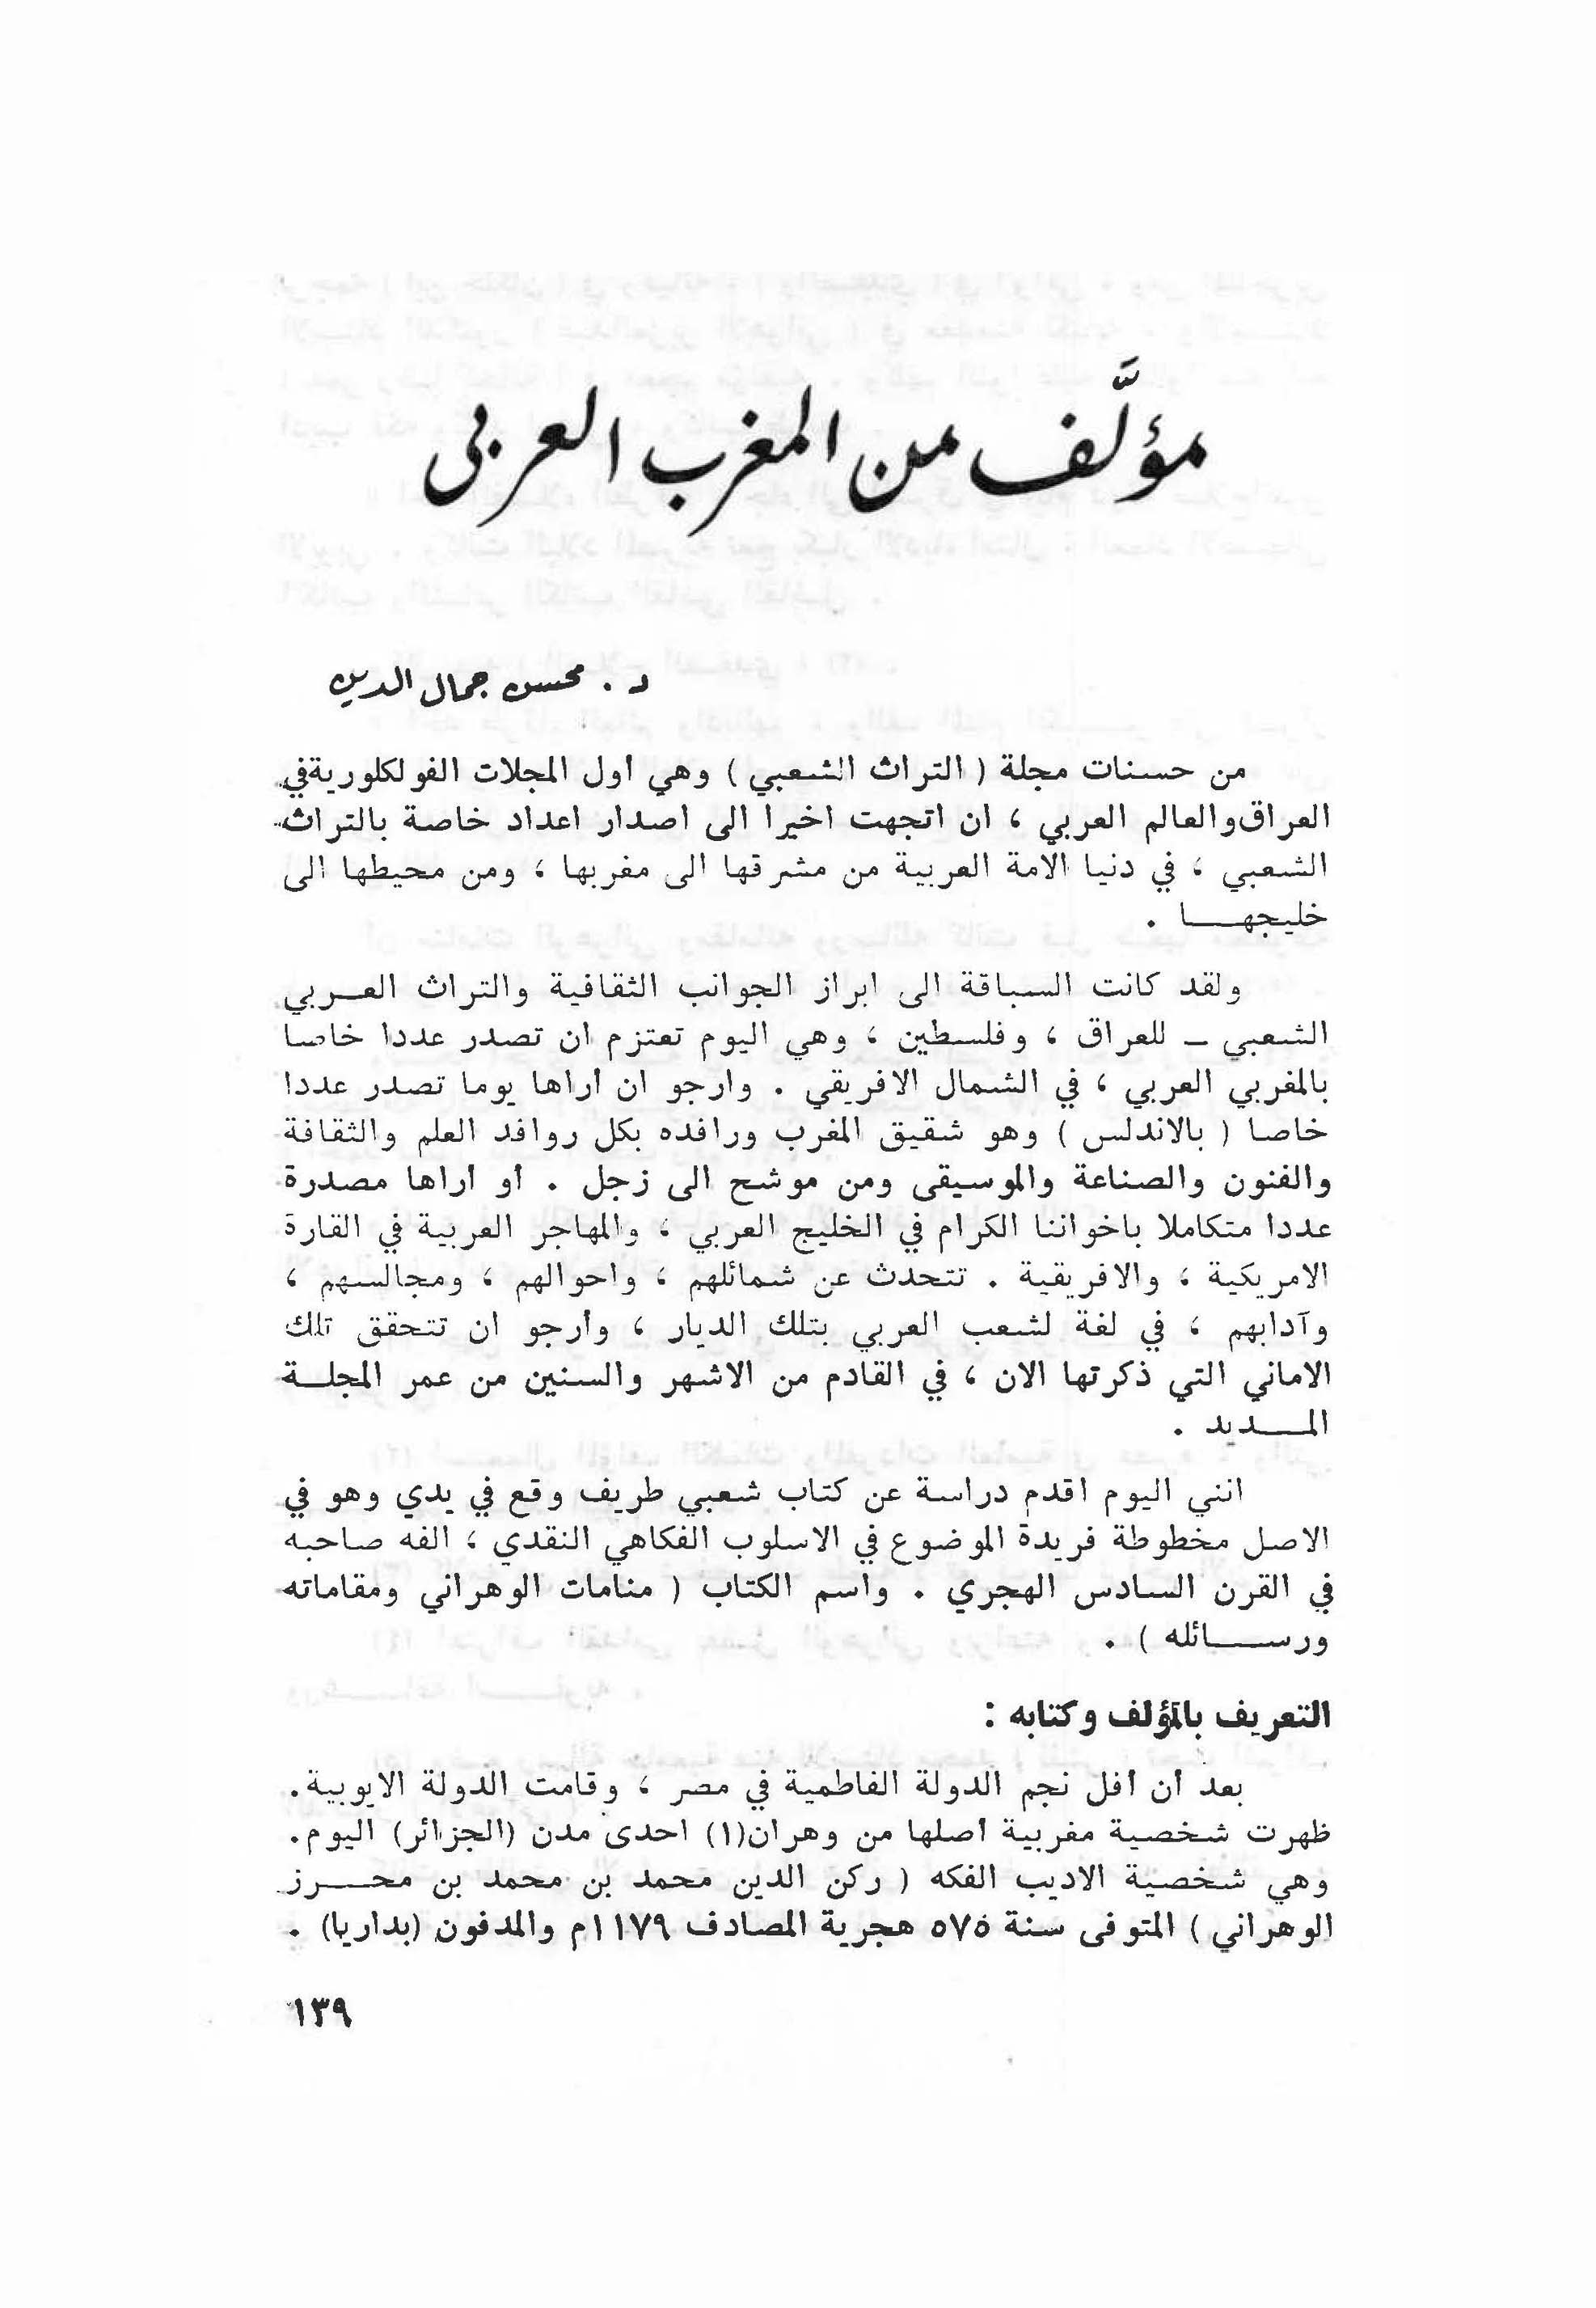 مؤلَّف من المغرب العربي
د. محسن جمال الدين
من حسنات مجلة ( التراث الشعبي ) وهي أول المجلات الفولكلورية في
العراق والعالم العربي ، ان اتجهت اخيرا الى اصدار اعداد خاصة بالتراث
الشعبي ، في دنيا الامة العربية من مشرقها الى مغربها ، ومن محيطها الى
خليجهـــا .
ولقد كانت السباقة الى ابراز الجوانب الثقافية والتراث العــربي
الشعبي – للعراق ، وفلسطين ، وهي اليوم تعتزم ان تصدر عددا خاصا
بالمغربي العربي ، في الشمال الافريقي . وارجو ان أراها يوما تصدر عددا
خاصا ( بالاندلس ) وهو شقيق المغرب ورافده بكل روافد العلم والثقافة
والفنون والصناعة والموسيقى ومن موشح الى زجل . أو أراها مصدرة
عددا متكاملا باخواننا الكرام في الخليج العربي ، والمهاجر العربية في القارة
الامريكية ، والافريقية . تتحدث عن شمائلهم ، واحوالهم ، ومجالسهم ،
وآدابهم ، في لغة لشعب العربي بتلك الديار ، وأرجو ان تتحقق تلك
الاماني التي ذكرتها الان ، في القادم من الاشهر والسنين من عمر المجلــة
المـــديد .
انني اليوم اقدم دراسة عن كتاب شعبي طريف وقع في يدي وهو في
الاصل مخطوطة فريدة الموضوع في الاسلوب الفكاهي النقدي ، الفه صاحبه
في القرن السادس الهجري . واسم الكتاب ( منامات الوهراني ومقاماته
ورســـائله ) .
التعريف بالمؤلف وكتابه :
بعد أن أفل نجم الدولة الفاطمية في مصر ، وقامت الدولة الايوبية.
ظهرت شخصية مغربية أصلها من وهران(١) احدى مدن (الجزائر) اليوم.
وهي شخصية الاديب الفكه ( ركن الدين محمد بن محمد بن محـــرز
الوهراني ) المتوفى سنة ٥٧٥ هجرية المصادف ١١٧٩م والمدفون (بداريا) .
١٣٩